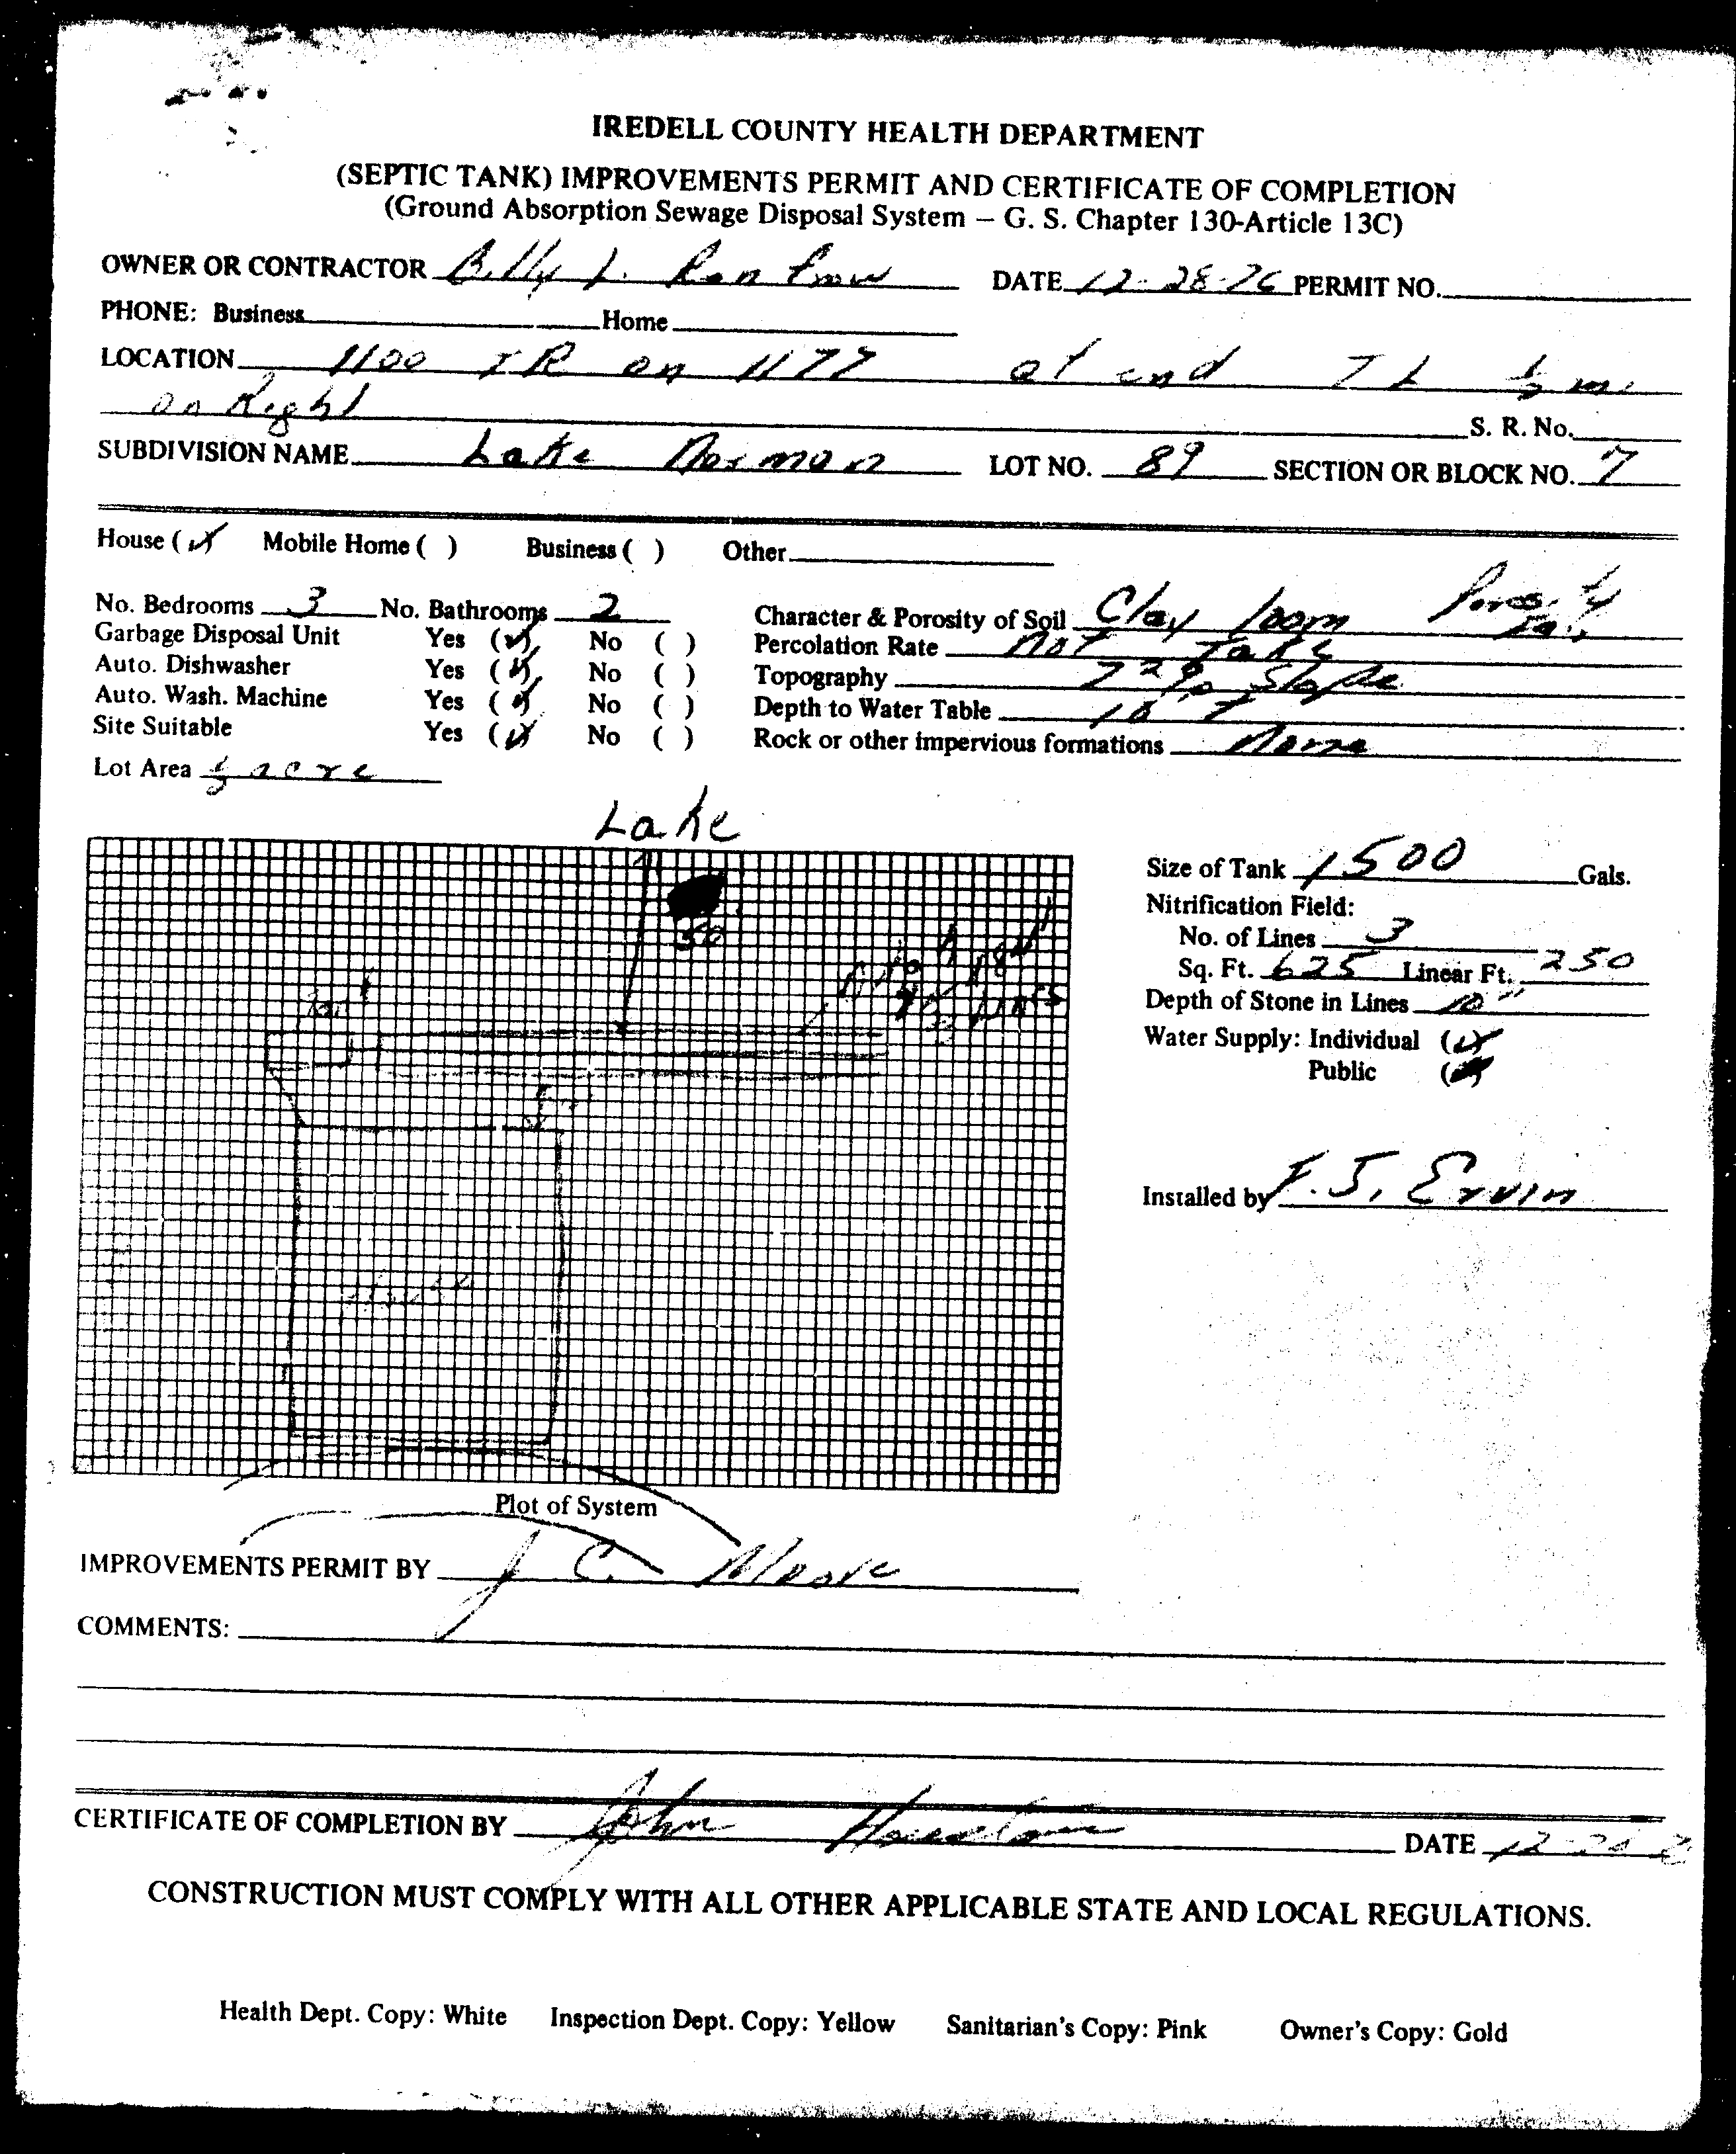 IREDELL COUNTY HEALTH DEPARTMENT
(SEPTIC TANK) IMPROVEMENTS PERMIT AND CERTIFICATE OF COMPLETION
(Ground Absorption Sewage Disposal System – G. S. Chapter 130-Article 13C)
OWNER OR CONTRACTOR Billy L. DATE 12-28-76 PERMIT NO.
PHONE: Business Home
LOCATION 1100 TR on 1177 at end TL 1/2 mi
on Right S. R. No.
SUBDIVISION NAME Lake Norman LOT NO. 89 SECTION OR BLOCK NO. 7
House (✓) Mobile Home ( ) Business ( ) Other
No. Bedrooms 3 No. Bathrooms 2 Character & Porosity of Soil Clay loom Porosity
Garbage Disposal Unit Yes (✓) No ( ) Percolation Rate not
Auto. Dishwasher Yes (✓) No ( ) Topography Slope
Auto. Wash. Machine Yes (✓) No ( ) Depth to Water Table
Site Suitable Yes (✓) No ( ) Rock or other impervious formations None
Lot Area 1/2 acre
Lake
50
Lines
Size of Tank 1500 Gals.
Nitrification Field:
No. of Lines 3
Sq. Ft. 625 Linear Ft. 250
Depth of Stone in Lines 10"
Water Supply: Individual (✓)
Public
Installed by F. J. Ervin
Plot of System
IMPROVEMENTS PERMIT BY J C. Moore
COMMENTS:
CERTIFICATE OF COMPLETION BY John DATE 12
CONSTRUCTION MUST COMPLY WITH ALL OTHER APPLICABLE STATE AND LOCAL REGULATIONS.
Health Dept. Copy: White Inspection Dept. Copy: Yellow Sanitarian's Copy: Pink Owner's Copy: Gold